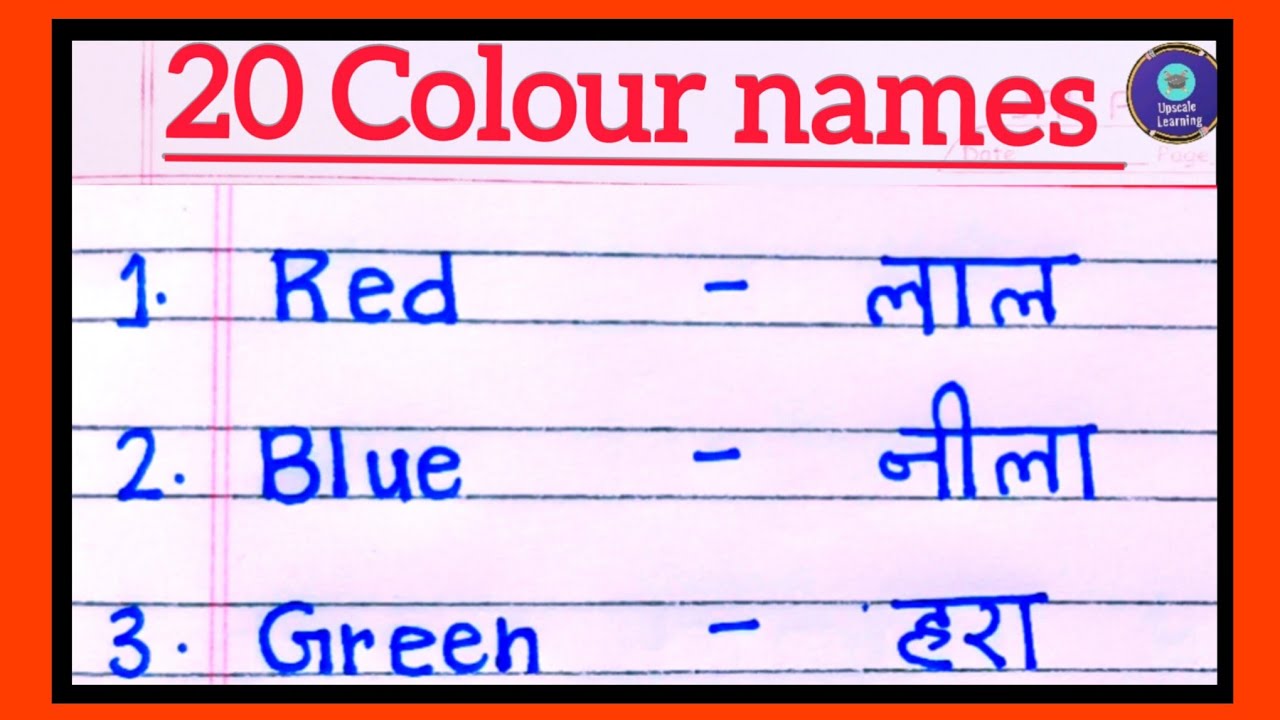 20 Colour names
Upscale
Learning
Date
Page
1. Red - लाल
2. Blue - नीला
3. Green - हरा